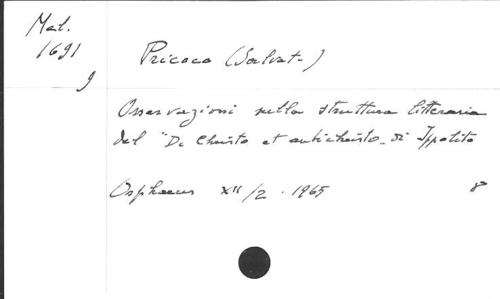 Mel.
1691
9
Pricoco (Salvat.)
Osservazioni sulla struttura litteraria
del "De Christo et antichristo" di Ippolito
Orpheus XII/2 - 1965
8